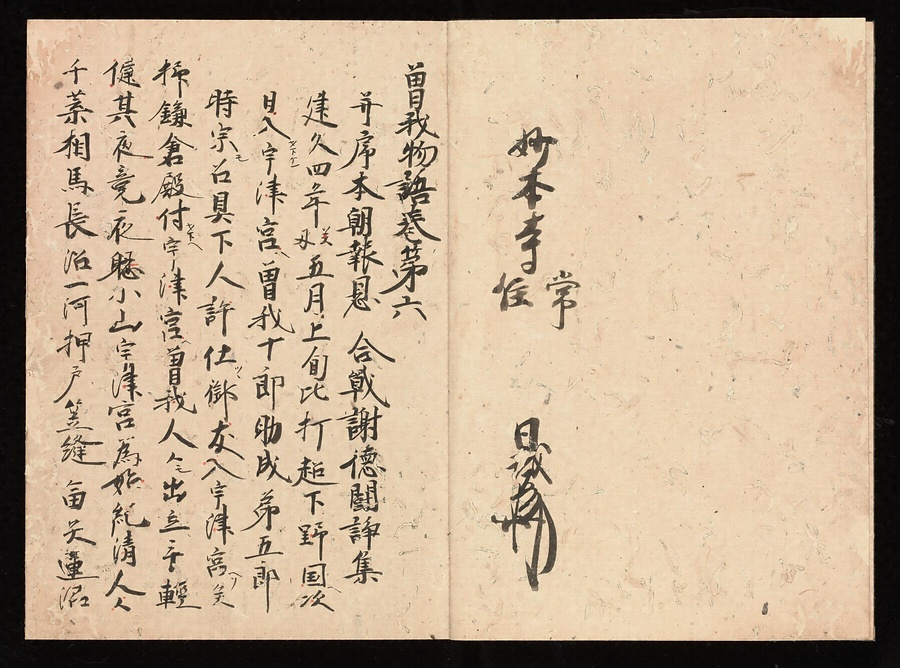 妙本寺
常
住
日
曽我物語巻第六
并序本朝報恩 合戦謝徳闘諍集
建久四年癸丑五月上旬比打超下野国次
日入宇津宮曽我十郎助成弟五郎
時宗召具下人許仕御友入宇津宮
掃鎌倉殿付宇津宮曽我人々出立
其夜竟夜聴小山宇津宮為始紀清人々
千葉相馬長沼一河押戸笠縫蓮沼